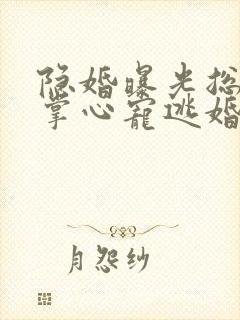 隐婚曝光总
掌心宠逃婚
月怨纱